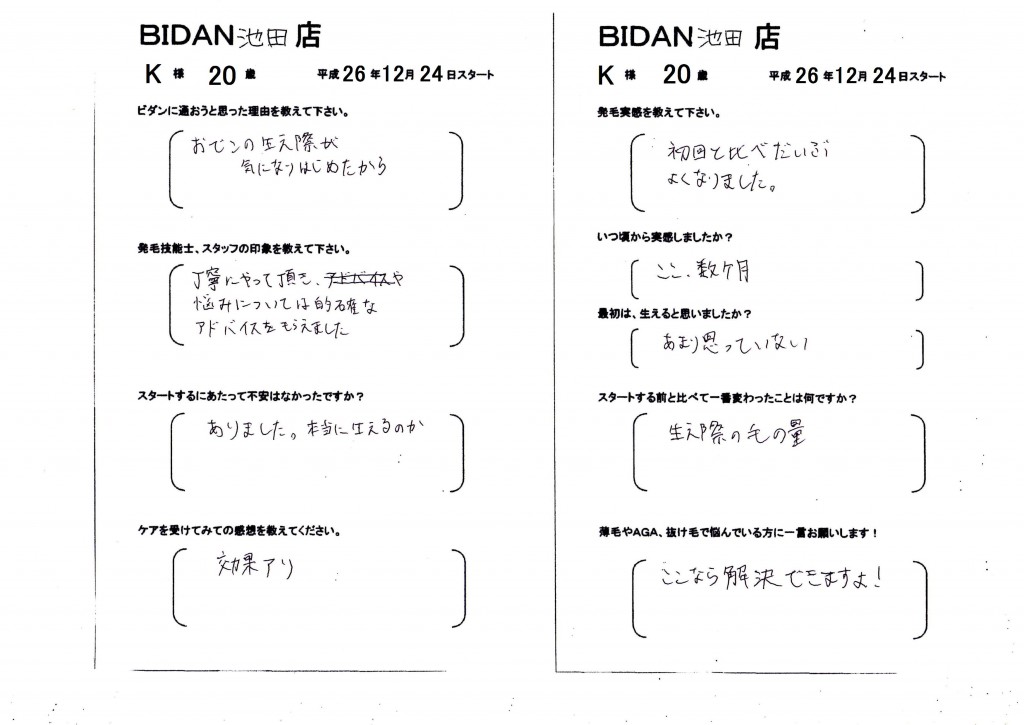 BIDAN池田 店
K 様 20 歳 平成 26 年 12 月 24 日スタート
ビダンに通おうと思った理由を教えて下さい。
おでこの生え際が
気になりはじめたから
発毛技能士、スタッフの印象を教えて下さい。
丁寧にやって頂き、アドバイスや
悩みについては的確な
アドバイスをもらえました
スタートするにあたって不安はなかったですか？
ありました。本当に生えるのか
ケアを受けてみての感想を教えてください。
効果アリ
BIDAN池田 店
K 様 20 歳 平成 26 年 12 月 24 日スタート
発毛実感を教えて下さい。
初回と比べだいぶ
よくなりました。
いつ頃から実感しましたか？
ここ、数ヶ月
最初は、生えると思いましたか？
あまり思っていない
スタートする前と比べて一番変わったことは何ですか？
生え際の毛の量
薄毛やAGA、抜け毛で悩んでいる方に一言お願いします！
ここなら解決できますよ！